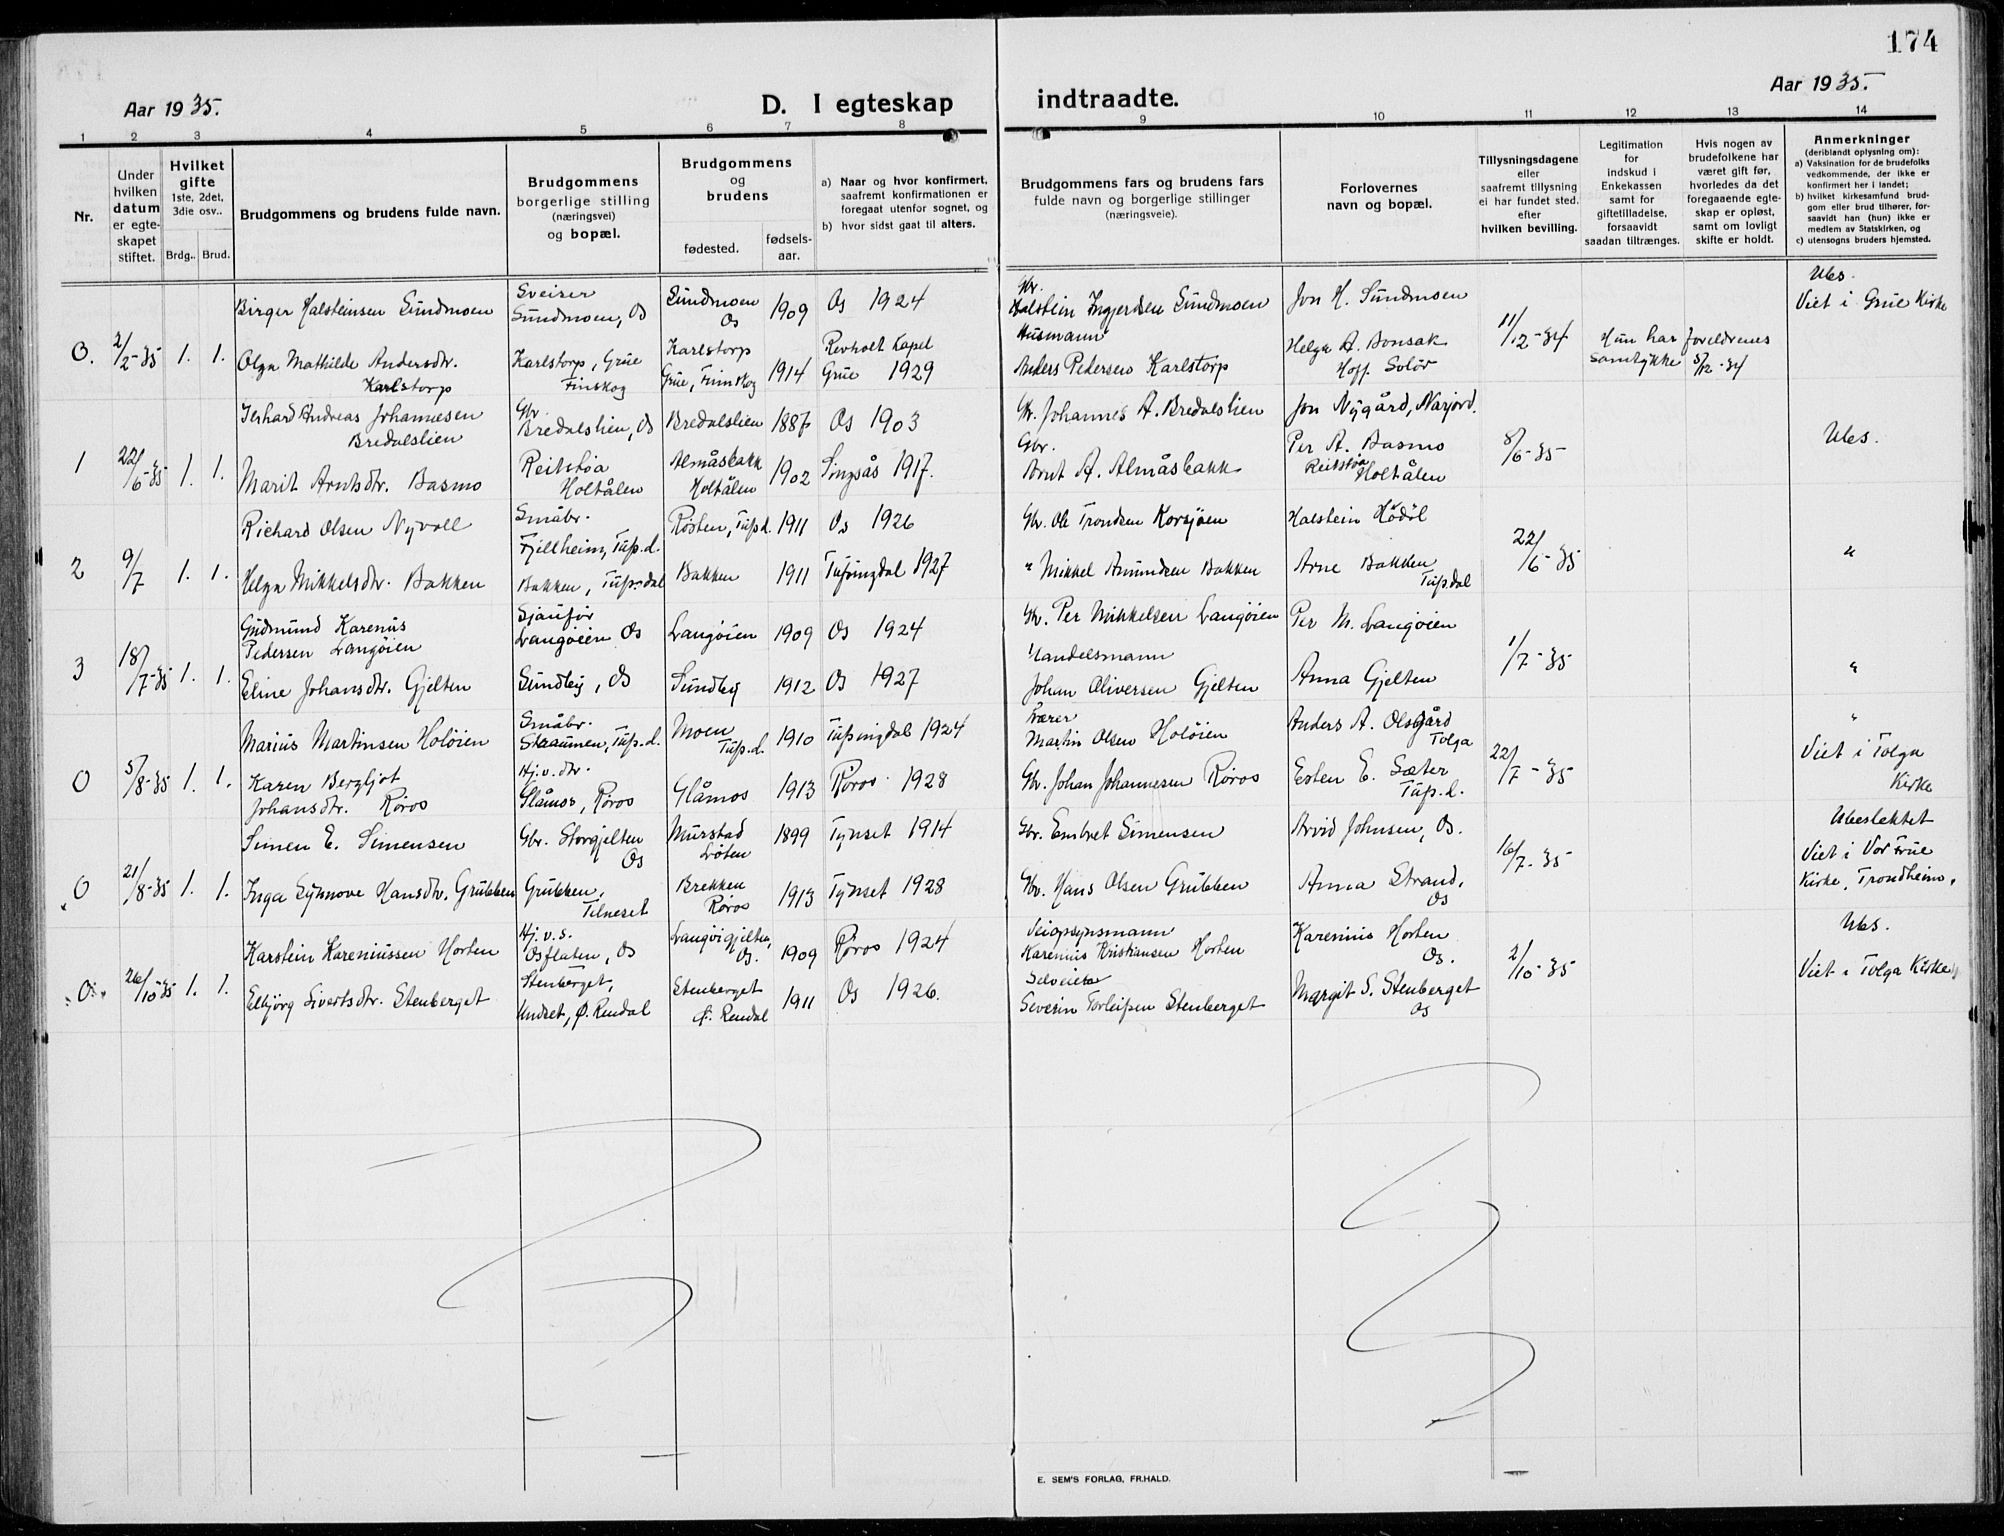 174
Aar 1935.
D. I egteskap indtraadte.
Aar 1935.
1 2 3 4 5 6 7 8 9 10 11 12 13 14
Nr.
Under hvilken datum er egteskapet stiftet.
Hvilket gifte 1ste, 2det, 3die osv..
Brdg.. Brud.
Brudgommens og brudens fulde navn.
Brudgommens borgerlige stilling (næringsvei) og bopæl.
Brudgommens og brudens
fødested.
fødselsaar.
a) Naar og hvor konfirmert, saafremt konfirmationen er foregaat utenfor sognet, og
b) hvor sidst gaat til alters.
Brudgommens fars og brudens fars fulde navn og borgerlige stillinger (næringsveie).
Forlovernes navn og bopæl.
Tillysningsdagene eller saafremt tillysning ei har fundet sted. efter hvilken bevilling.
Legitimation for indskud i Enkekassen samt for giftetilladelse, forsaavidt saadan tiltrænges.
Hvis nogen av brudefolkene har været gift før, hvorledes da det foregaaende egteskap er opløst, samt om lovligt skifte er holdt.
Anmerkninger (deriblandt oplysning om):
a) Vaksination for de brudefolks vedkommende, der ikke er konfirmert her i landet;
b) hvilket kirkesamfund brudgom eller brud tilhører, forsaavidt han (hun) ikke er medlem av Statskirken, og
c) utensogns bruders hjemsted.
Birger Halsteinsen Sundmoen Sveiser Sundmoen, Os Sundmoen Os 1909 Os 1924 Gbr. Halstein Ingjerdsen Sundmoen Jon H. Sundmoen Ubs. Viet i Grue Kirke
O. 2/2-35 1. 1. Olga Mathilde Andersdtr. Karlstorp Karlstorp, Grue Finskog Karlstorp Grue, Finnskog 1914 Revholt Kapel Grue 1929 Husmann Anders Pedersen Karlstorp Helga A. Bonsak Hoff Solør 11/12-34 Hun har foreldrenes Samtykke 5/12-34
Jerhard Andreas Johannesen Bredalslien Gbr. Bredalslien, Os Bredalslien 1887 Os 1903 Gbr. Johannes A. Bredalslien Jon Nygård, Narjord.
1 22/6-35 1. 1. Marit Arntsdtr. Basmo Reitstøa Holtålen Almåsbakk Holtålen 1902 Singsås 1917. Gbr. Arnt A. Almåsbakk Per A. Basmo Reitstøa Holtålen 8/6-35 Ubs.
Richard Olsen Nyvoll Småbr. Fjellheim, Tufs.d. Røsten, Tufs.d. 1911 Os 1926 Gbr. Ole Trondsen Korsjøen Halstein Hødøl
2 9/7 1. 1. Helga Mikkelsdtr. Bakken Bakken, Tufs.dal Bakken 1911 Tufsingdal 1927 " Mikkel Amundsen Bakken Arne Bakken Tufs.dal 22/6-35 "
Gudmund Karenus Pedersen Langøien Sjauför Langøien Os Langøien 1909 Os 1924 Gbr. Per Mikkelsen Langøien Per M. Langøien
3 18/7-35 1. 1. Eline Johansdtr. Gjelten Sundby, Os Sundby 1912 Os 1927 Handelsmann Johan Oliversen Gjelten Anna Gjelten 1/7-35 "
Marius Martinsen Holøien Småbr. Straumen, Tufs.d. Moen Tufs.d. 1910 Tufsingdal 1924 Lærer Martin Olsen Holøien Anders A. Olsgård Tolga "
O 5/8-35 1. 1. Karen Bergljot Johansdtr. Røros Hj.v.dtr. Glåmos, Røros Glåmos 1913 Røros 1928 Gbr. Johan Johannesen Røros Esten E. Sæter Tufs.d. 22/7-35 Viet i Tolga Kirke
Simen E. Simensen Gbr. Storgjelten Os Murstad Løten 1899 Tynset 1914 Gbr. Embret Simensen Arvid Johnsen, Os. Ubeslektet
O 21/8-35 1. 1. Inga Synnove Hansdtr. Grubben Grubben, Tilneset Brekken Røros 1913 Tynset 1928 Gbr. Hans Olsen Grubben Anna Strand, Os 16/7-35 Viet i Vor Frue Kirke, Trondheim.
Karstein Kareniussen Horten Hj.v.s. Osflaten, Os Langøigjelten, Os. 1909 Røros 1924 Veiopsynsmann Karenius Kristiansen Horten Karenius Horten Os. Ubs.
O. 26/10-35 1. 1. Elbjørg Sivertsdtr. Stenberget Stenberget, Undset, Ø. Rendal Stenberget Ø. Rendal 1911 Os 1926. Selveier Severin Torleifsen Stenberget Margit S. Stenberget Os 2/10-35 Viet i Tolga Kirke
E. SEM'S FORLAG, FR.HALD.